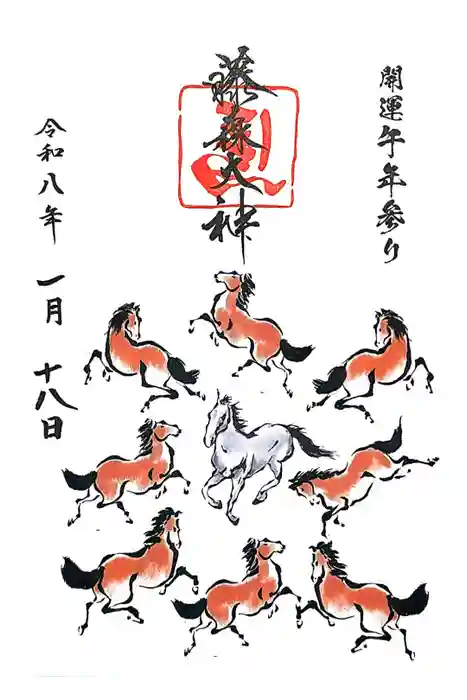 開運午年参り
藤森大神
令和八年 一月 十八日